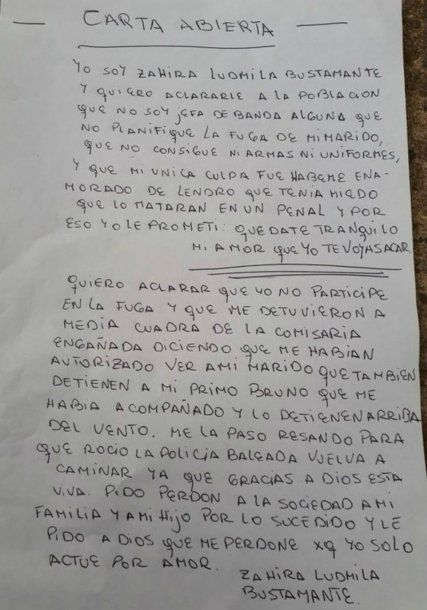 — CARTA ABIERTA —
YO SOY ZAHIRA LUDMILA BUSTAMANTE
Y QUIERO ACLARARLE A LA POBLACION
QUE NO SOY JEFA DE BANDA ALGUNA QUE
NO PLANIFIQUE LA FUGA DE MI MARIDO,
QUE NO CONSIGUE NI ARMAS NI UNIFORMES,
Y QUE MI UNICA CULPA FUE HABEME ENA-
MORADO DE LENDRO QUE TENIA MIEDO
QUE LO MATARAN EN UN PENAL Y POR
ESO YO LE PROMETI: QUEDATE TRANQUILO
MI AMOR QUE YO TE VOY A SACAR
QUIERO ACLARAR QUE YO NO PARTICIPE
EN LA FUGA Y QUE ME DETUVIERON A
MEDIA CUADRA DE LA COMISARIA
ENGAÑADA DICIENDO QUE ME HABIAN
AUTORIZADO VER A MI MARIDO QUE TAMBIEN
DETIENEN A MI PRIMO BRUNO QUE ME
HABIA ACOMPAÑADO Y LO DETIENEN ARRIBA
DEL VENTO. ME LA PASO RESANDO PARA
QUE ROCIO LA POLICIA BALEADA VUELVA A
CAMINAR YA QUE GRACIAS A DIOS ESTA
VIVA. PIDO PERDON A LA SOCIEDAD A MI
FAMILIA Y A MI HIJO POR LO SUCEDIDO Y LE
PIDO A DIOS QUE ME PERDONE XQ YO SOLO
ACTUE POR AMOR.
ZAHIRA LUDMILA
BUSTAMANTE.